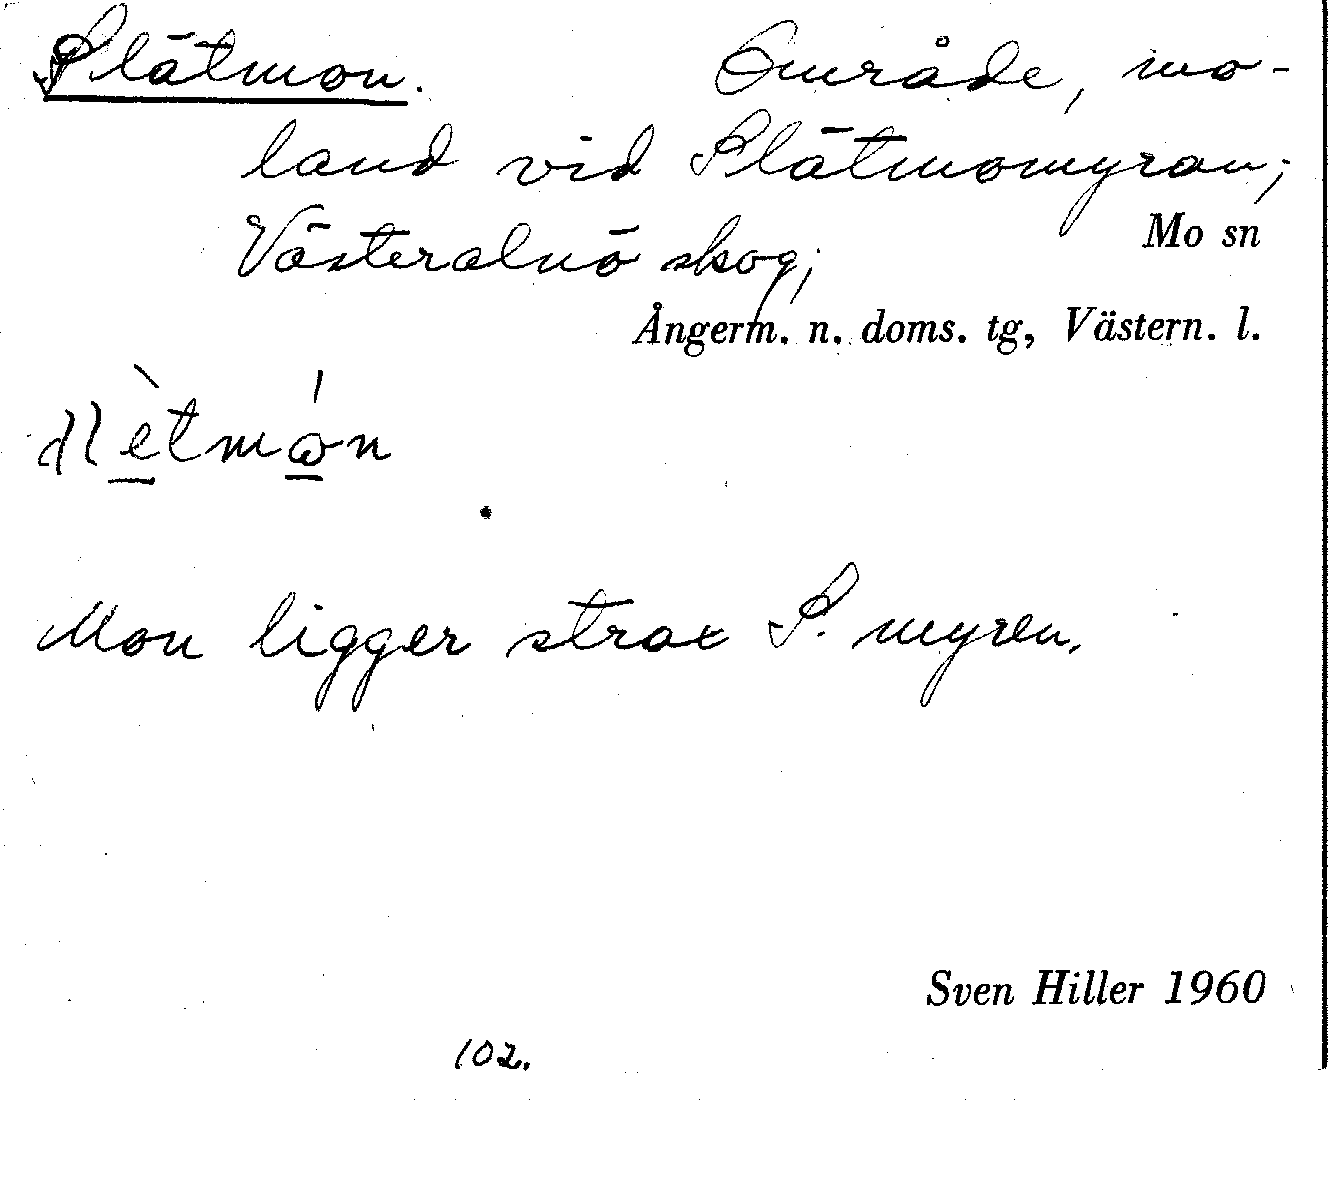 Slätmon. Område, mo-
land vid Slätmomyran;
Västeralnö skog;
Mo sn
Ångerm. n. doms. tg, Västern. l.
Mon ligger strax S. myren.
Sven Hiller 1960
102.